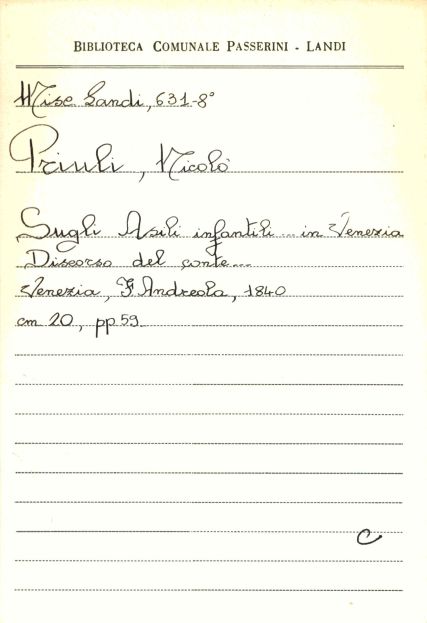 BIBLIOTECA COMUNALE PASSERINI - LANDI
Misc Landi, 631-8°
Priuli, Nicolò
Sugli Asili infantili ... in Venezia
Discorso del conte...
Venezia, F. Andreola, 1840
cm 20, pp 59
C